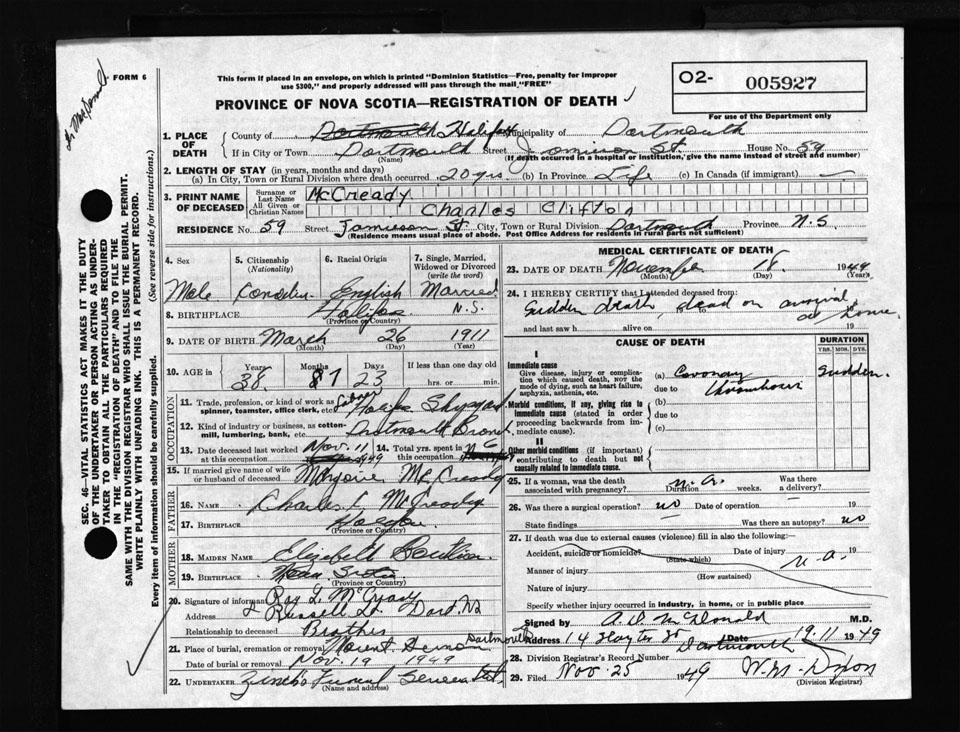 Dr. MacDonald
FORM 6
This form if placed in an envelope, on which is printed "Dominion Statistics—Free, penalty for improper
use $300," and properly addressed will pass through the mail "FREE"
PROVINCE OF NOVA SCOTIA—REGISTRATION OF DEATH
O2- 005927
For use of the Department only
SEC. 46—VITAL STATISTICS ACT MAKES IT THE DUTY
OF THE UNDERTAKER OR PERSON ACTING AS UNDER-
TAKER TO OBTAIN ALL THE PARTICULARS REQUIRED
IN THE "REGISTRATION OF DEATH" AND TO FILE THE
SAME WITH THE DIVISION REGISTRAR WHO SHALL ISSUE THE BURIAL PERMIT.
WRITE PLAINLY WITH UNFADING INK. THIS IS A PERMANENT RECORD.
Every item of information should be carefully supplied. (See reverse side for instructions.)
1. PLACE OF DEATH
County of Dartmouth Halifax Municipality of Dartmouth
If in City or Town Dartmouth Street Jamieson St. House No. 59
(Name) (If death occurred in a hospital or institution, give the name instead of street and number)
2. LENGTH OF STAY (in years, months and days)
(a) In City, Town or Rural Division where death occurred 20 yrs. (b) In Province Life (c) In Canada (if immigrant) —
3. PRINT NAME OF DECEASED
Surname or Last Name McCready
All Given or Christian Names Charles Clifton
RESIDENCE No. 59 Street Jamieson St City, Town or Rural Division Dartmouth Province N.S
(Residence means usual place of abode. Post Office Address for residents in rural parts not sufficient)
4. Sex 5. Citizenship (Nationality) 6. Racial Origin 7. Single, Married, Widowed or Divorced (write the word)
Male Canadian English Married
8. BIRTHPLACE Halifax N.S.
(Province or Country)
9. DATE OF BIRTH March 26 1911
(Month) (Day) (Year)
10. AGE in Years Months Days If less than one day
38 7 23 hrs. or min.
OCCUPATION
11. Trade, profession, or kind of work as spinner, teamster, office clerk, etc. Labourer Halifax Shipyard
12. Kind of industry or business, as cotton-mill, lumbering, bank, etc. Dartmouth Branch
13. Date deceased last worked at this occupation Nov. 11 1949 14. Total yrs. spent in this occupation
15. If married give name of wife or husband of deceased Marjorie McCready
FATHER
16. Name Charles McCready
17. Birthplace Halifax
(Province or Country)
MOTHER
18. Maiden Name Elizabeth
19. Birthplace Nova Scotia
(Province or Country)
20. Signature of informant Roy L. McCready
Address 2 Russell St. Dart. NS
Relationship to deceased Brother
21. Place of burial, cremation or removal Mount Hermon Dartmouth
Date of burial or removal Nov. 19 1949
22. UNDERTAKER Zinck's Funeral Service
(Name and address)
MEDICAL CERTIFICATE OF DEATH
23. DATE OF DEATH November 18 1949
(Month) (Day) (Year)
24. I HEREBY CERTIFY that I attended deceased from:
Sudden death, dead on arrival at home.
and last saw h alive on 19
CAUSE OF DEATH DURATION
YRS. MOS. DYS.
I
Immediate cause
Give disease, injury or complication which caused death, not the mode of dying, such as heart failure, asphyxia, asthenia, etc.
(a) Coronary Thrombosis Sudden.
due to
Morbid conditions, if any, giving rise to immediate cause (stated in order proceeding backwards from immediate cause).
(b)
due to
(c)
II
Other morbid conditions (if important) contributing to death but not causally related to immediate cause.
25. If a woman, was the death associated with pregnancy? n.a. Duration weeks. Was there a delivery?
26. Was there a surgical operation? no Date of operation 19
State findings Was there an autopsy? no
27. If death was due to external causes (violence) fill in also the following:
Accident, suicide or homicide? Date of injury n.a. 19
(State which)
Manner of injury
(How sustained)
Nature of injury
Specify whether injury occurred in industry, in home, or in public place
Signed by A. D. McDonald M.D.
Address 14 St Dartmouth Date 19.11 1949
28. Division Registrar's Record Number
29. Filed Nov. 25 1949 W. Dixon
(Division Registrar)